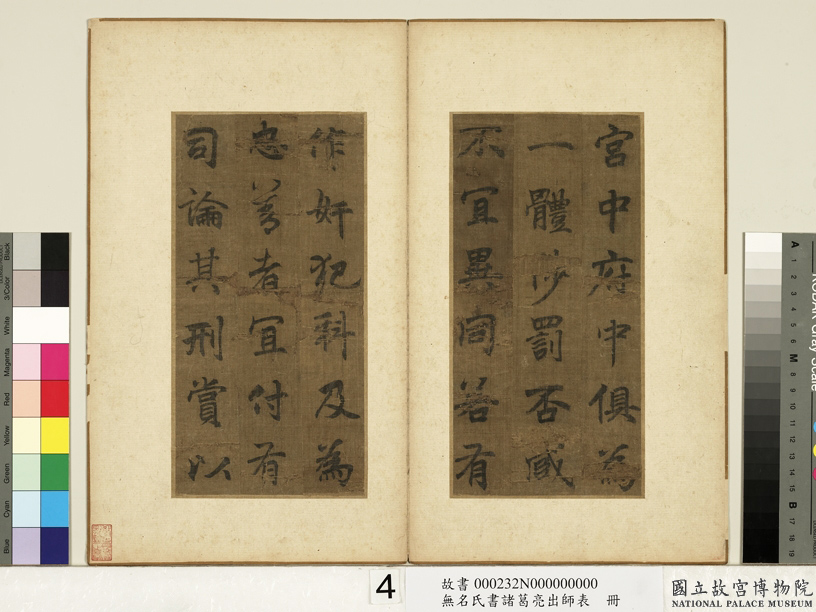 宮中府中俱為
一體陟罰否臧
不宜異同若有
作奸犯科及為
忠善者宜付有
司論其刑賞以
Black
3/Color
White
Magenta
Red
Yellow
Green
Cyan
Blue
A 1 2 3 4 5 6 M 8 9 10 11 12 13 14 15 B 17 18 19
4
故書 000232N000000000
無名氏書諸葛亮出師表 冊
國立故宮博物院
NATIONAL PALACE MUSEUM